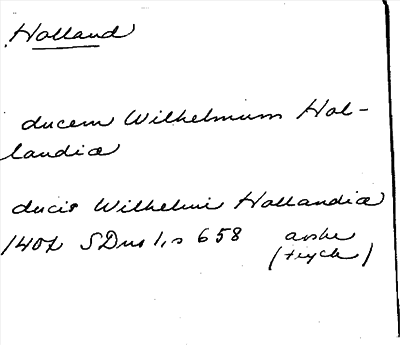 Holland
ducem Wilhelmum Hol-
landiæ
ducis Wilhelmi Hollandiæ
SDns 1, s 658 avskr
(tryck)